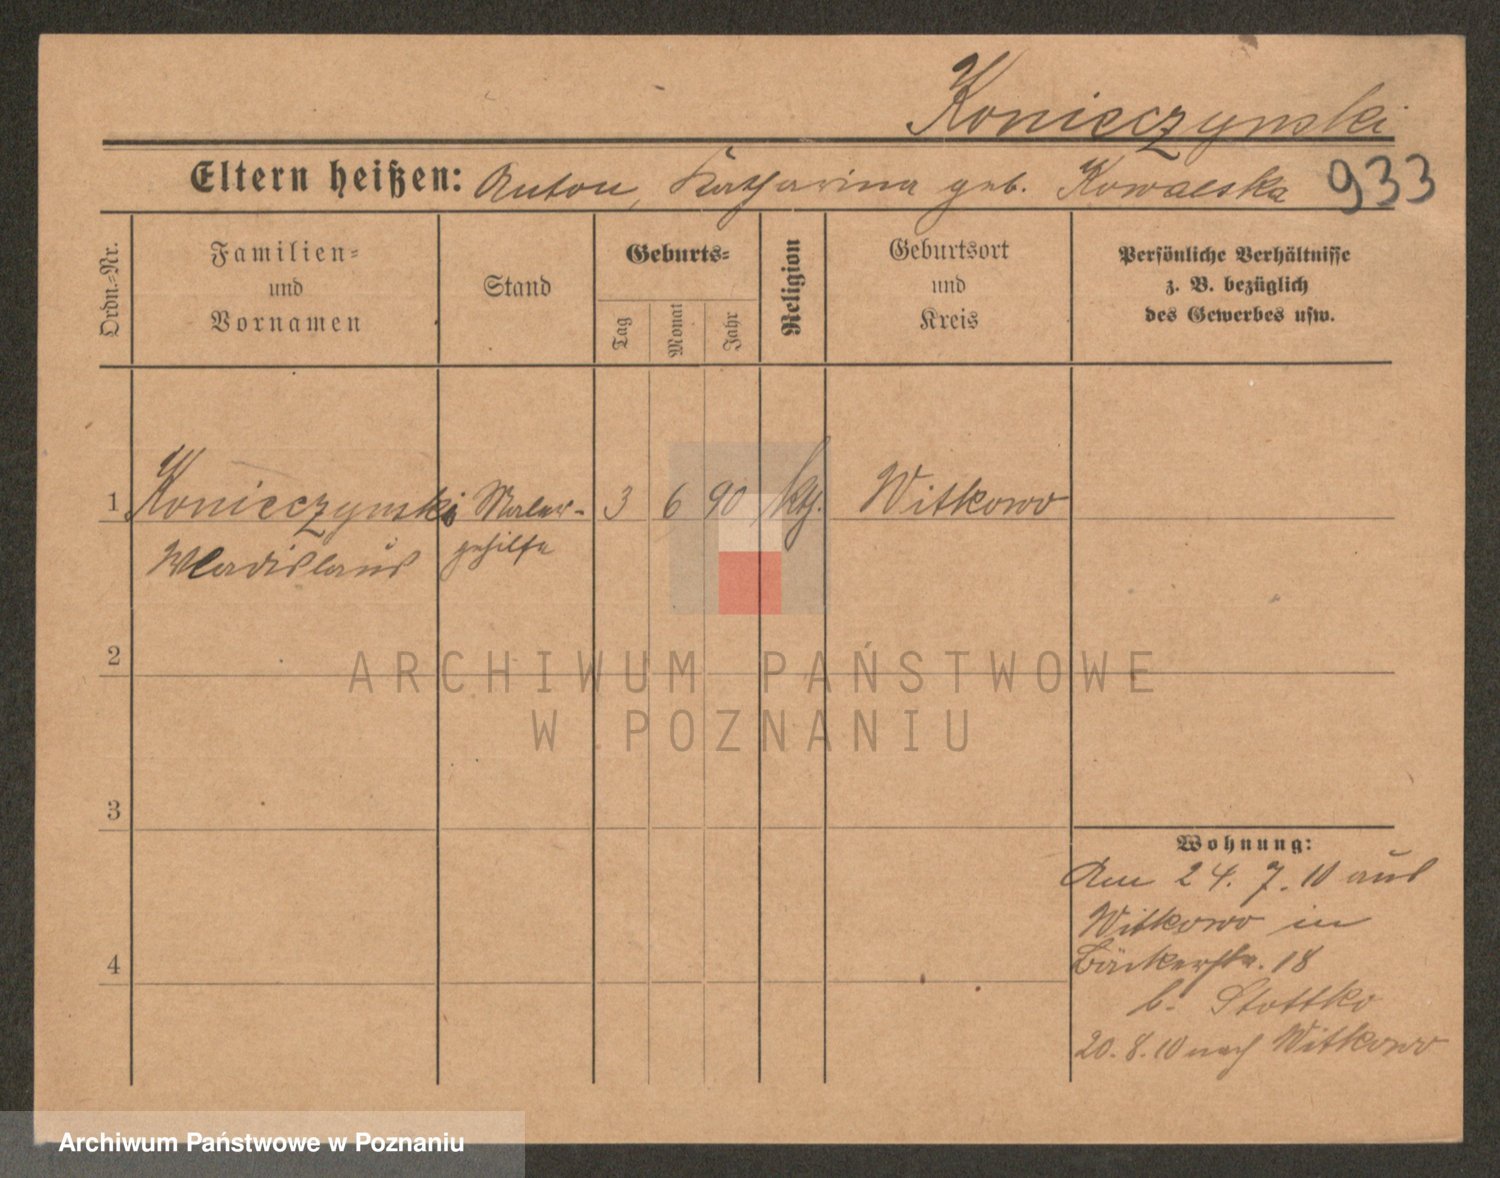 Konieczynski
Eltern heißen: Anton, Katharina geb. Kowalska 933
Ordn.-Nr.
Familien-
und
Vornamen
Stand
Geburts-
Tag
Monat
Jahr
Religion
Geburtsort
und
Kreis
Persönliche Verhältnisse
z. B. bezüglich
des Gewerbes usw.
1 Konieczynski Maler- 3 6 90 kth. Witkowo
Wladislaus gehilfe
2
ARCHIWUM PAŃSTWOWE
W POZNANIU
3
Wohnung:
Am 24. 7. 10 aus
Witkowo in
Bäckerstr. 18
4
b. Stottko
20. 8. 10 nach Witkowo
Archiwum Państwowe w Poznaniu